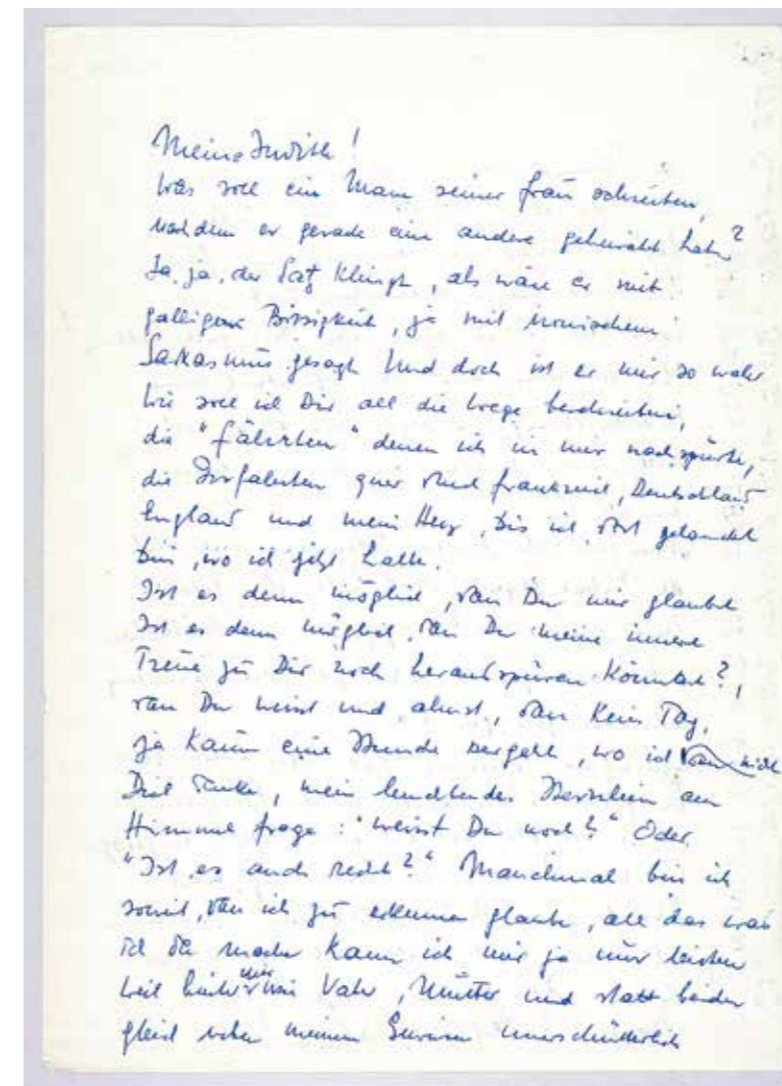 Meine Judith!
Was soll ein Mann seiner Frau schreiben,
nachdem er gerade eine andere geheiratet hat?
Ja, ja, der Satz klingt, als wäre er mit
galligem Bissigkeit, ja mit ironischem
Sarkasmus gesagt. Und doch ist er mir so wahr
Wie soll ich Dir all die Wege beschreiben,
die "Fährten" denen ich in mir nachspürte,
die Irrfahrten quer durch Frankreich, Deutschland
England und mein Herz, bis ich dort gelandet
bin, wo ich jetzt halte.
Ist es denn möglich, dass Du mir glaubst
Ist es denn möglich, dass Du meine innere
Treue zu Dir noch herausspüren könntest?,
dass Du weisst und ahnst, dass kein Tag,
ja kaum eine Stunde vergeht, wo ich nicht
Dich denke, mein leuchtendes Sternlein am
Himmel frage: "weisst Du noch?" Oder
"Ist es auch recht?" Manchmal bin ich
soweit, dass ich zu erkennen glaube, all das was
ich da mache kann ich mir ja nur leisten
weil hinter mir Vater, Mutter und statt beider
gleich neben meinem unerschütterlich